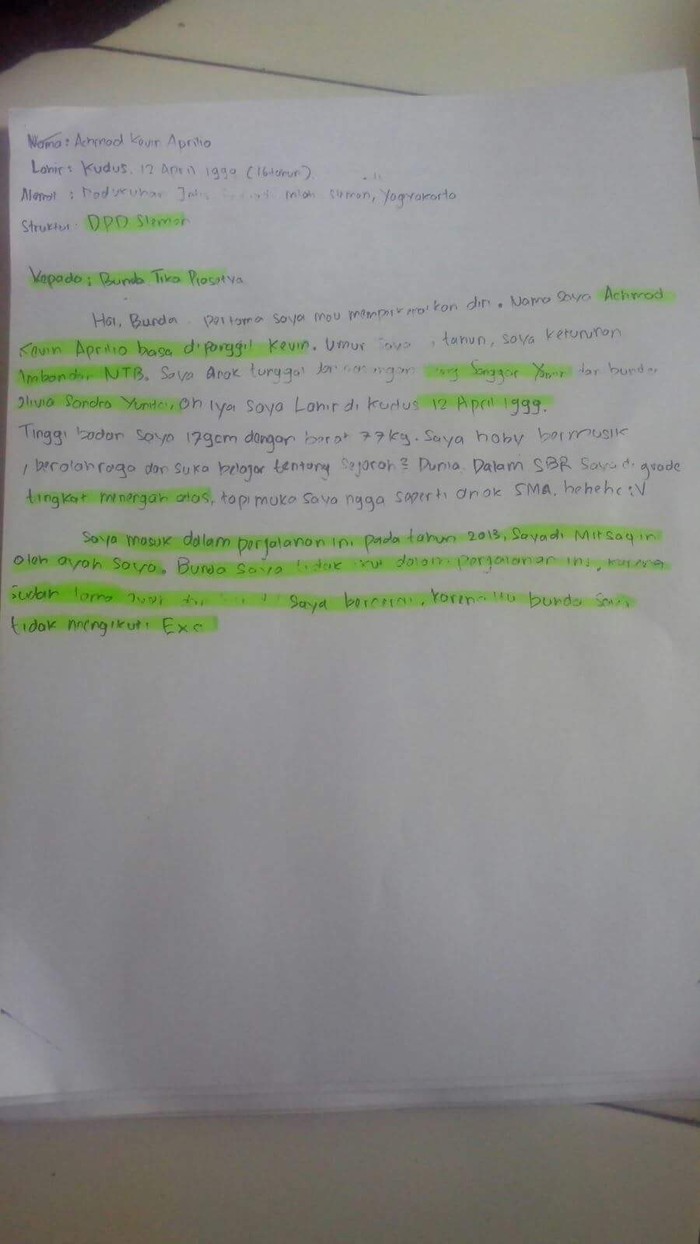 Nama: Achmad Kevin Aprilio
Lahir: Kudus, 12 April 1999 (16 tahun)
Alamat : Padukuhan Sleman, Yogyakarta
Struktur: DPD Sleman
Kepada: Bunda Tika Prasetya
Hai, Bunda. pertama saya mau memperkenalkan diri. Nama saya Achmad
Kevin Aprilio basa dipanggil Kevin. Umur saya tahun, saya keturunan
NTB. Saya anak tunggal dari dan bunda
Olivia Sandra Oh iya saya Lahir di Kudus 12 April 1999.
Tinggi badan saya 179cm dengan berat 77kg. Saya hoby bermusik
, berolahraga dan suka belajar tentang Sejarah2 Dunia. Dalam SBR Saya di grade
tingkat menengah atas, tapi muka saya ngga seperti anak SMA. hehehe :V
Saya masuk dalam perjalanan ini pada tahun 2013, Saya di Mitsaqin
oleh ayah saya. Bunda saya tidak dalam perjalanan ini, karena
sudah lama Saya bercerai, karena itu bunda saya
tidak mengikuti Exc